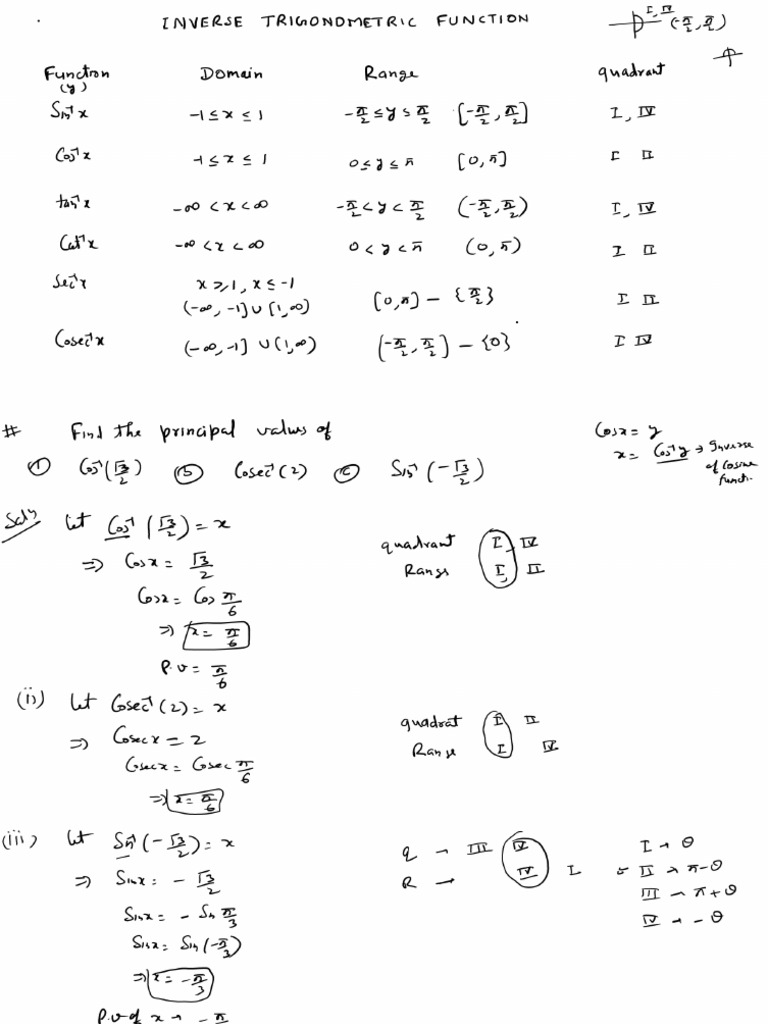 INVERSE TRIGONOMETRIC FUNCTION I, IV (-π/2, π/2)
Function (y) Domain Range quadrant
Sin⁻¹x -1 ≤ x ≤ 1 -π/2 ≤ y ≤ π/2 [-π/2, π/2] I, IV
Cos⁻¹x -1 ≤ x ≤ 1 0 ≤ y ≤ π [0, π] I II
tan⁻¹x -∞ < x < ∞ -π/2 < y < π/2 (-π/2, π/2) I, IV
Cot⁻¹x -∞ < x < ∞ 0 < y < π (0, π) I II
Sec⁻¹x x ≥ 1, x ≤ -1
(-∞, -1] ∪ [1, ∞) [0, π] - {π/2} I II
Cosec⁻¹x (-∞, -1] ∪ [1, ∞) [-π/2, π/2] - {0} I IV
# Find the principal values of
Cos⁻¹(√3/2) Cosec⁻¹(2) Sin⁻¹(-√3/2)
Cosx = y
x = Cos⁻¹y → Inverse
of Cosine
functn.
Soln let Cos⁻¹(√3/2) = x
⇒ Cosx = √3/2
Cosx = Cos π/6
⇒ x = π/6
P.v = π/6
quadrant I, IV
Range I, II
(ii) let Cosec⁻¹(2) = x
⇒ Cosecx = 2
Cosecx = Cosec π/6
⇒ x = π/6
quadrat I II
Range I IV
(iii) let Sin⁻¹(-√3/2) = x
⇒ Sinx = -√3/2
Sinx = - Sin π/3
Sinx = Sin(-π/3)
⇒ x = -π/3
P.v of x → -π
q → III IV
R → IV I
I → θ
II → π-θ
III → π+θ
IV → -θ